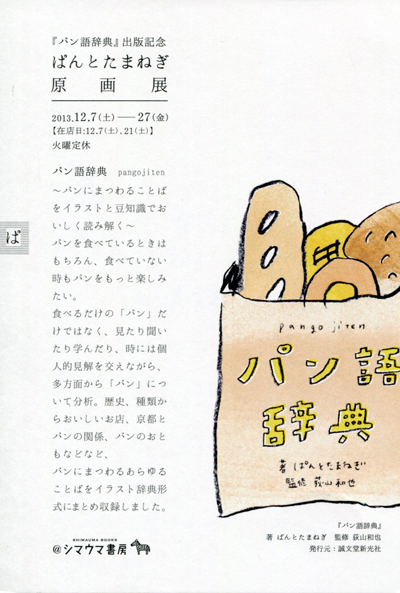 『パン語辞典』出版記念
ぱんとたまねぎ
原画展
2013.12.7(土)――27(金)
【在店日:12.7(土)、21(土)】
火曜定休
パン語辞典 pangojiten
〜パンにまつわることば
をイラストと豆知識でお
いしく読み解く〜
パンを食べているときは
もちろん、食べていない
時もパンをもっと楽しみ
たい。
食べるだけの「パン」だ
けではなく、見たり聞い
たり学んだり、時には個
人的見解を交えながら、
多方面から「パン」につ
いて分析。歴史、種類か
らおいしいお店、京都と
パンの関係、パンのおと
もなどなど、
パンにまつわるあらゆる
ことばをイラスト辞典形
式にまとめ収録しました。
SHIMAUMA BOOKS
@シマウマ書房
ぱ
pango jiten
パン語
辞典
著 ぱんとたまねぎ
監修 荻山和也
『パン語辞典』
著 ぱんとたまねぎ 監修 荻山和也
発行元：誠文堂新光社